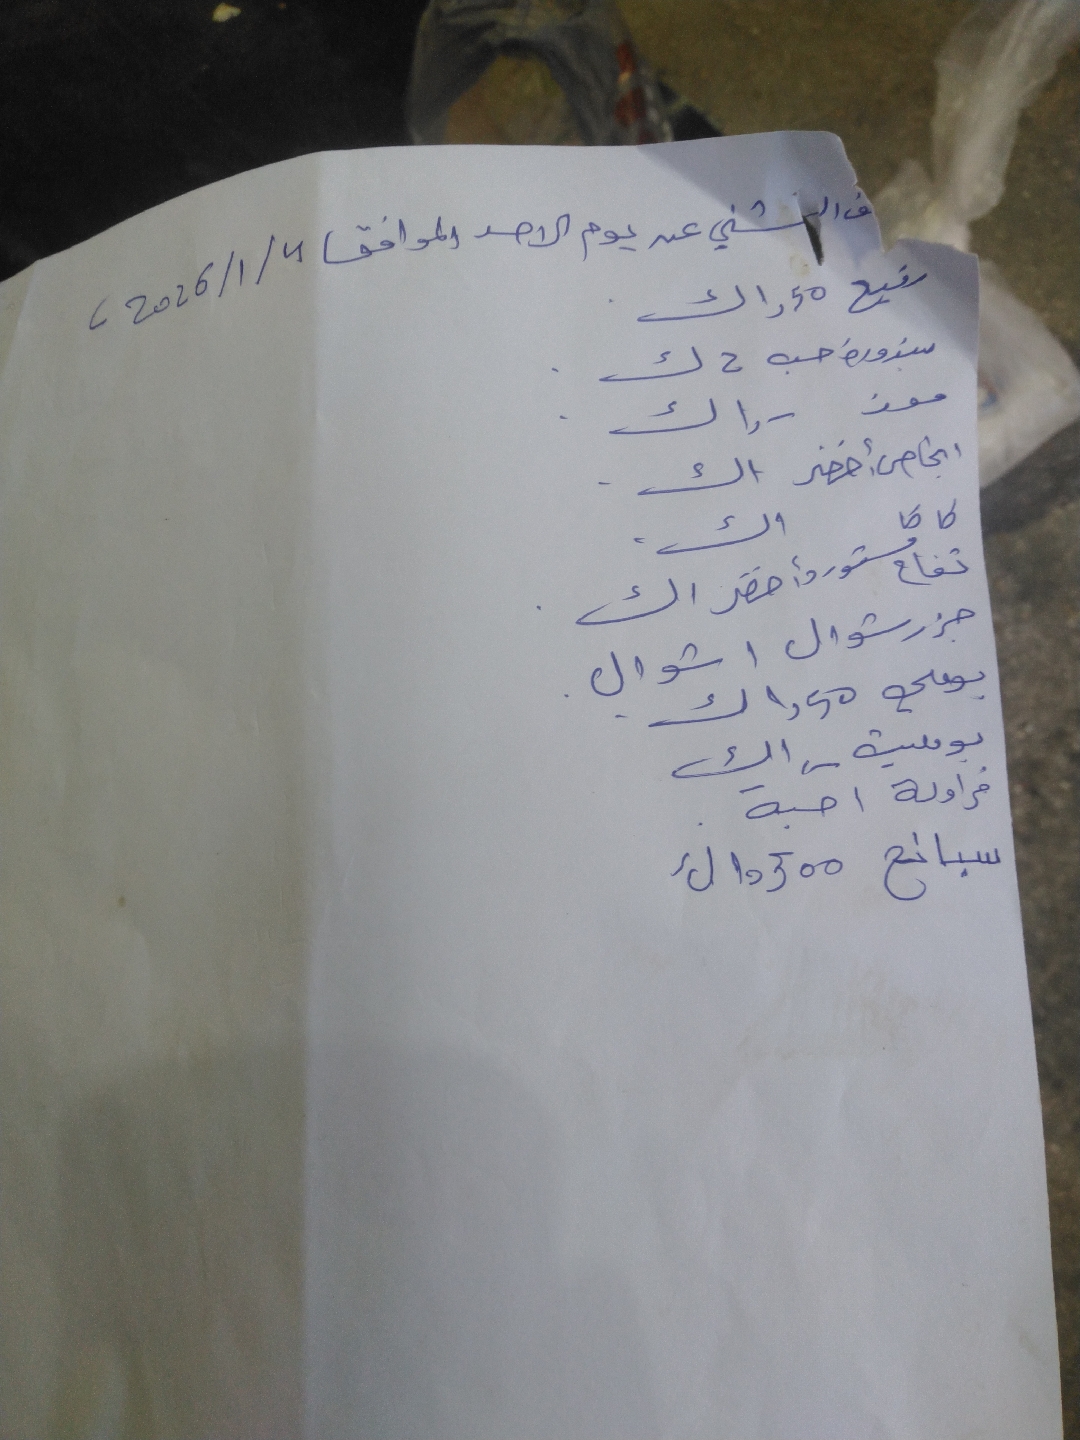 عن يوم الاحد الموافق 2026/1/4
رفيع 50,1 ك
بندورة حب 2 ك
موز 1,- ك
انجاص أخضر 1 ك
كاكا 1 ك
تفاح مستورد أخضر 1 ك
جزر شوال 1 شوال
بوملي 50,1 ك
بوملية 1,- ك
فراولة 1 حبة
سبانخ 500,1 ك